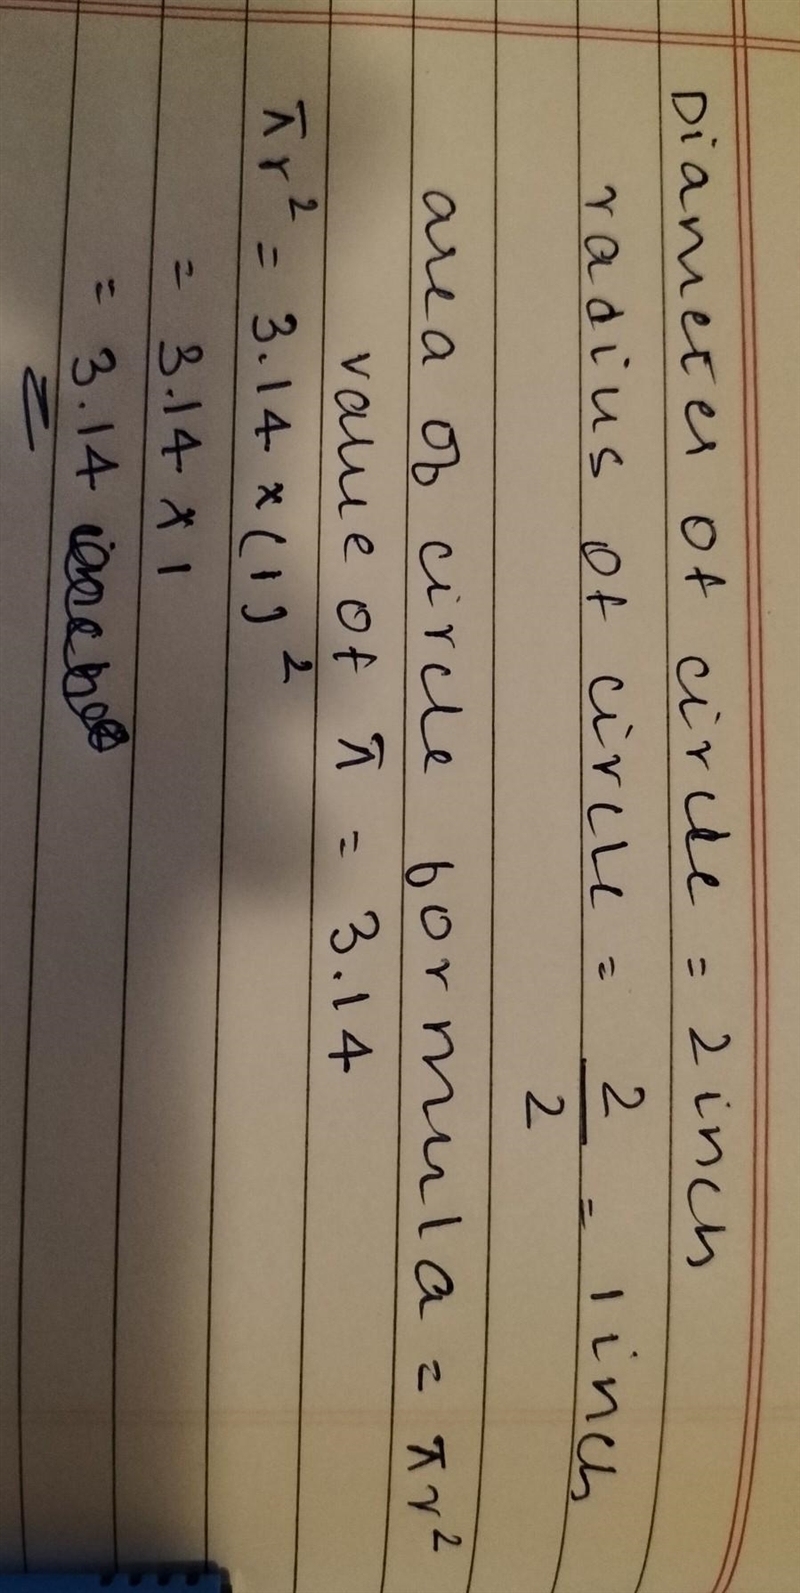 Diameter of circle = 2 inch
radius of circle = 2/2 = 1 inch
area of circle formula = πr²
value of π = 3.14
πr² = 3.14 × (1)²
= 3.14 × 1
= 3.14